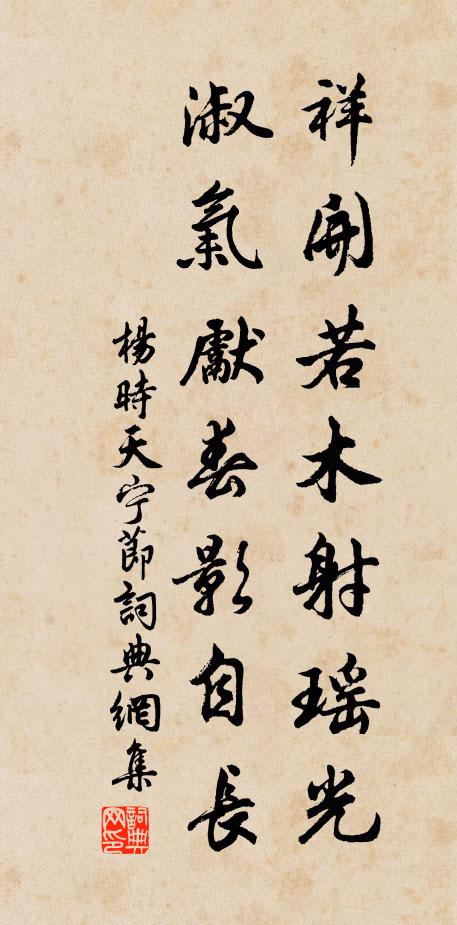 祥開若木射瑶光
淑氣獻春影自長
楊時天宁節詞典網集
詞典網印